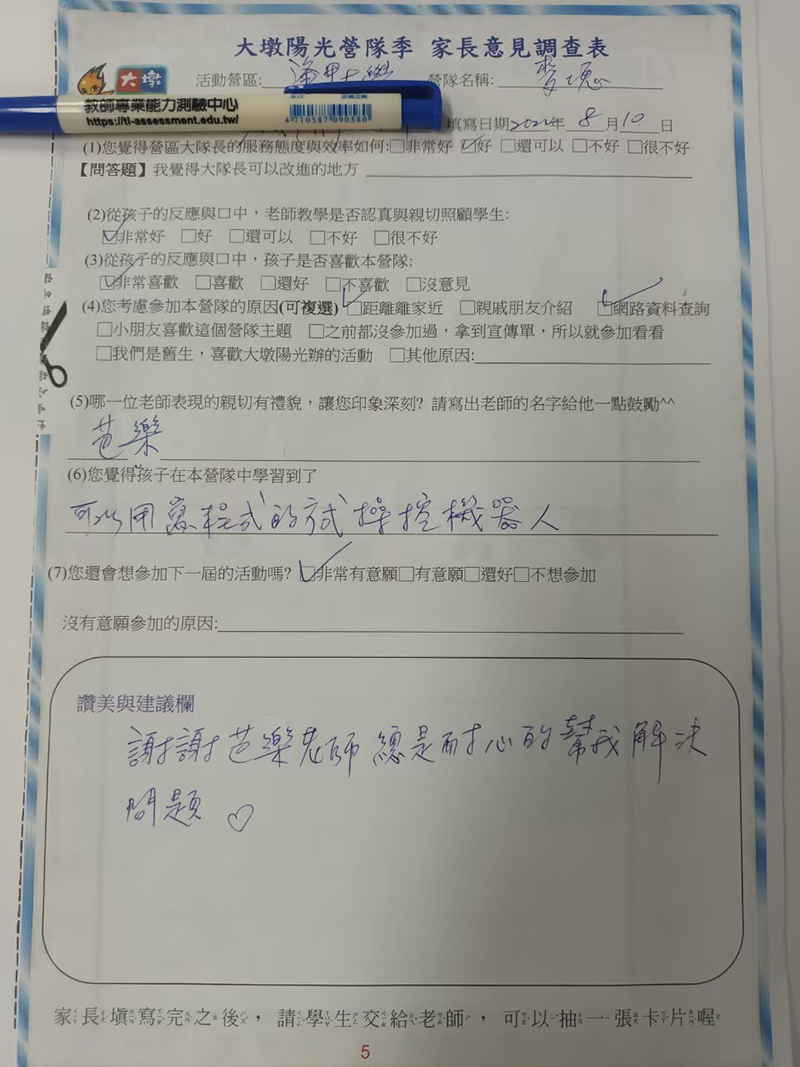 大墩陽光營隊季 家長意見調查表
大墩 活動營區: 逢甲大學 營隊名稱:
教師專業能力測驗中心
https://tl-assessment.edu.tw/
4710587090580
填寫日期2022年 8 月 10 日
(1)您覺得營區大隊長的服務態度與效率如何:□非常好 ☑好 □還可以 □不好 □很不好
【問答題】我覺得大隊長可以改進的地方
(2)從孩子的反應與口中，老師教學是否認真與親切照顧學生:
☑非常好 □好 □還可以 □不好 □很不好
(3)從孩子的反應與口中，孩子是否喜歡本營隊:
☑非常喜歡 □喜歡 □還好 □不喜歡 □沒意見
(4)您考慮參加本營隊的原因(可複選) ☑距離離家近 □親戚朋友介紹 ☑網路資料查詢
□小朋友喜歡這個營隊主題 □之前都沒參加過，拿到宣傳單，所以就參加看看
□我們是舊生，喜歡大墩陽光辦的活動 □其他原因:
(5)哪一位老師表現的親切有禮貌，讓您印象深刻? 請寫出老師的名字給他一點鼓勵^^
芭樂
(6)您覺得孩子在本營隊中學習到了
可以用寫程式的方式操控機器人
(7)您還會想參加下一屆的活動嗎? ☑非常有意願□有意願□還好□不想參加
沒有意願參加的原因:
讚美與建議欄
謝謝芭樂老師總是耐心的幫我解決
問題 ♡
家長填寫完之後，請學生交給老師，可以抽一張卡片喔
5